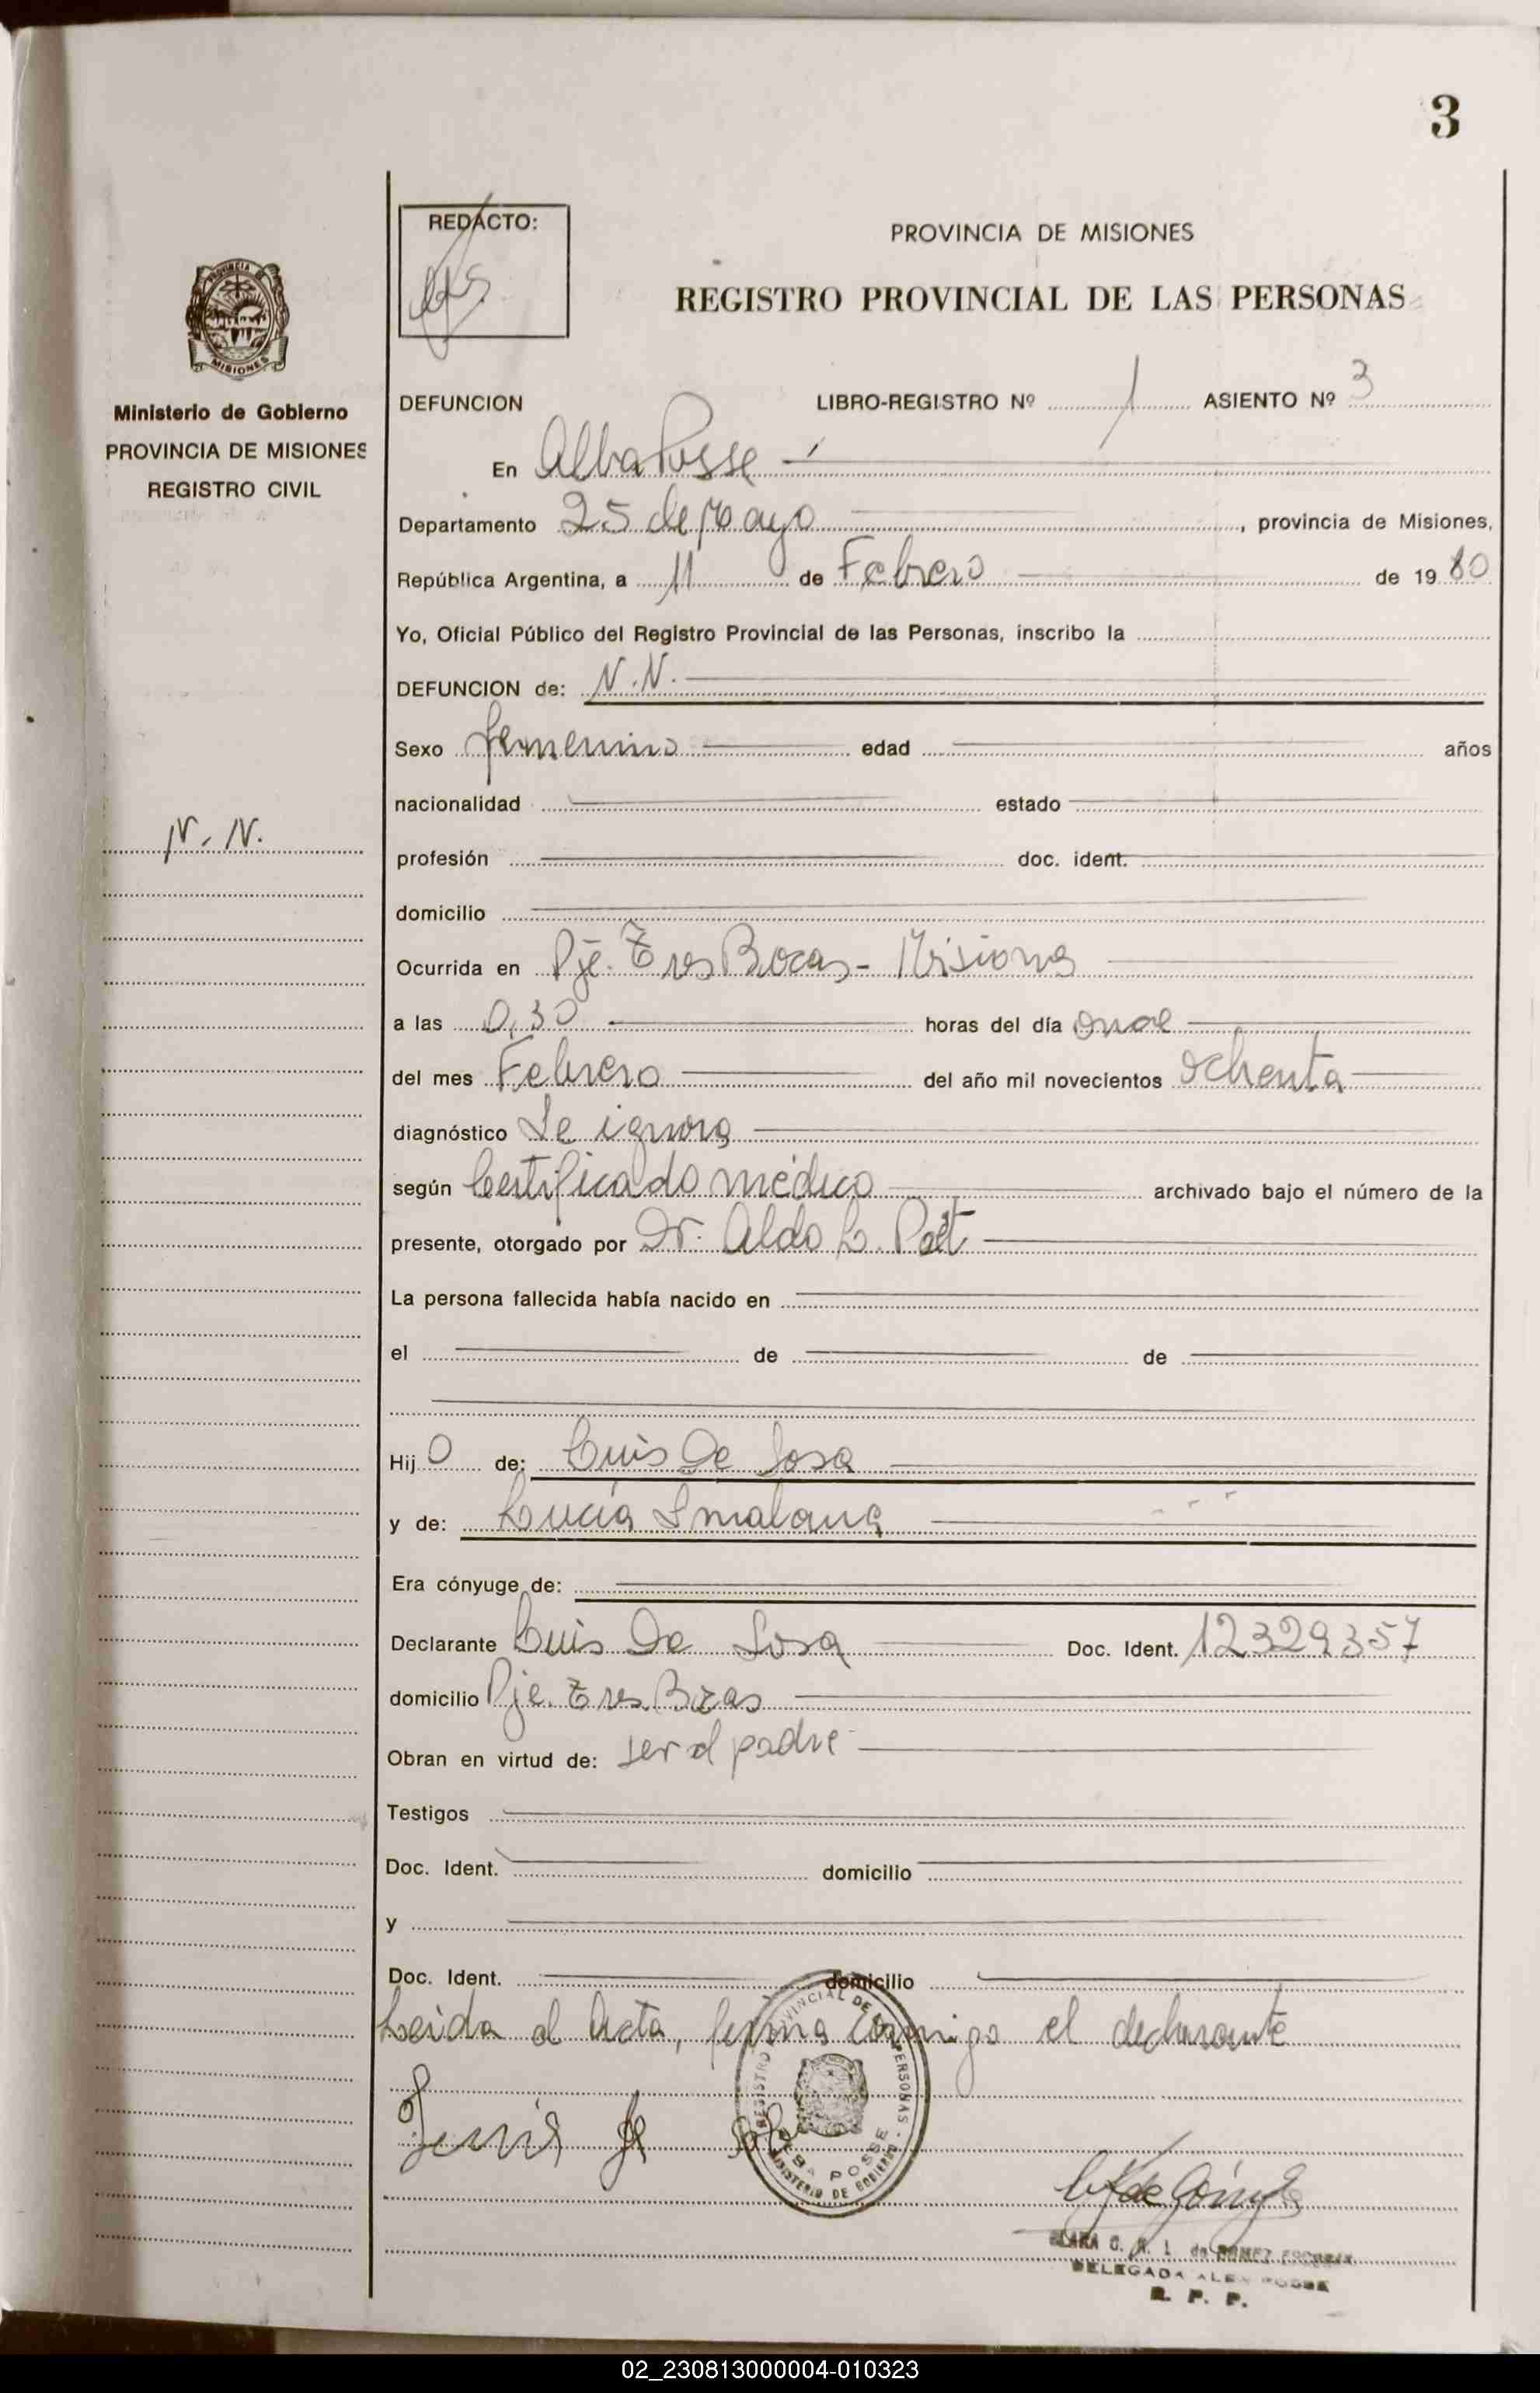 3
REDACTO:
PROVINCIA DE MISIONES
REGISTRO PROVINCIAL DE LAS PERSONAS
PROVINCIA DE
MISIONES
Ministerio de Gobierno
PROVINCIA DE MISIONES
REGISTRO CIVIL
N. N.
DEFUNCION LIBRO-REGISTRO Nº 1 ASIENTO Nº 3
En Alba Posse
Departamento 25 de Mayo, provincia de Misiones,
República Argentina, a 11 de Febrero de 1980
Yo, Oficial Público del Registro Provincial de las Personas, inscribo la
DEFUNCION de: N.N.
Sexo femenino edad años
nacionalidad estado
profesión doc. ident.
domicilio
Ocurrida en Pje. Tres Bocas - Misiones
a las 0,30 horas del día once
del mes Febrero del año mil novecientos ochenta
diagnóstico Se ignora
según Certificado médico archivado bajo el número de la
presente, otorgado por Dr. Aldo L.
La persona fallecida había nacido en
el de de
Hijo de: Luis De Sosa
y de: Lucía Smalaua
Era cónyuge de:
Declarante Luis De Sosa Doc. Ident. 12329357
domicilio Pje. Tres Bocas
Obran en virtud de: ser el padre
Testigos
Doc. Ident. domicilio
y
Doc. Ident. domicilio
Leida el Acta, firma conmigo el declarante
REGISTRO PROVINCIAL DE LAS PERSONAS
ALBA POSSE
MINISTERIO DE GOBIERNO
CLARA C. de GOMEZ
DELEGADA ALBA POSSE
R. P. P.
02_230813000004-010323